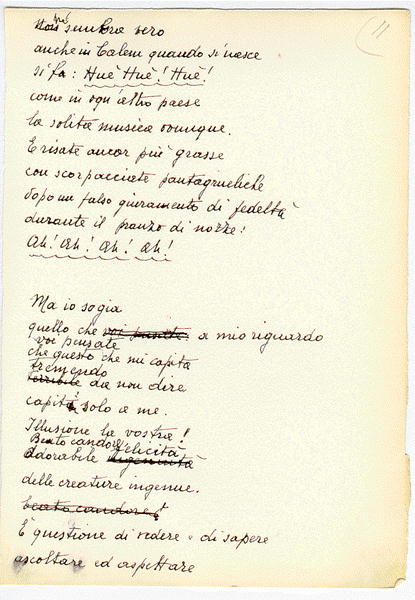 11
Non sembra vero
anche in Calem quando si nasce
si fa: Huè Huè! Huè!
come in ogn'altro paese
la solita musica ovunque.
E risate ancor più grasse
con scorpacciate pantagrueliche
dopo un falso giuramento di fedeltà
durante il pranzo di nozze:
Ah! Ah! Ah! Ah!
Ma io so già
quello che voi pensate a mio riguardo
voi pensate
che questo che mi capita
tremendo
terribile da non dire
capiti solo a me.
Illusione la vostra!
Beato candore felicità
Adorabile ingenuità
delle creature ingenue.
beato candore!
È questione di vedere e di sapere
ascoltare ed aspettare